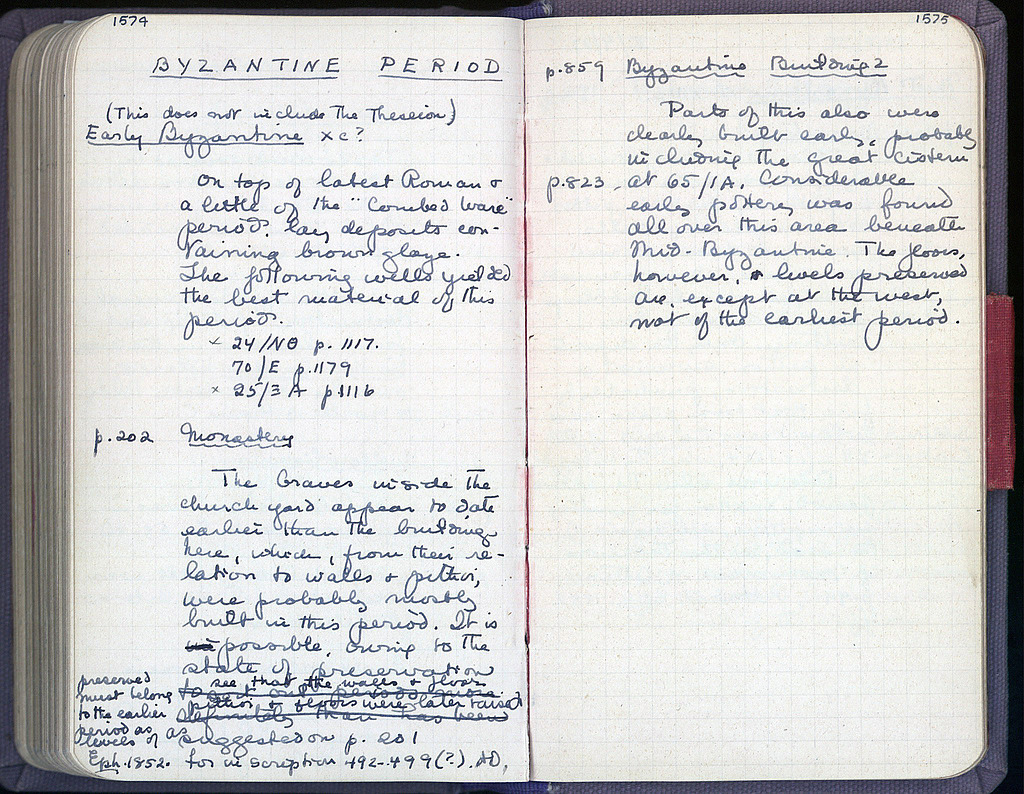 1574
BYZANTINE PERIOD
(This does not include the Theseion)
Early Byzantine xc?
On top of latest Roman &
a little of the "Combed Ware"
period, lay deposits con-
taining brown glaze.
The following wells yielded
the best material of this
period.
x 24/ΝΘ p. 1117.
70/E p.1179
x 25/ΞΛ p.1116
p.202 Monastery
The Graves inside the
church yard appear to date
earlier than the building
here, which, from their re-
lation to walls & pithoi,
were probably mostly
built in this period. It is
possible, owing to the
state of preservation
see that the walls & floors
preserved
must belong
to the earlier
period as as
levels of
pithoi & floors were later raised
suggested on p. 201
Eph. 1852. for inscription 492-499(?). AD,
1575
p.859 Byzantine Building 2
Parts of this also were
clearly built early, probably
including the great cistern
p.823. at 65/ΙΑ. Considerable
early pottery was found
all over this area beneath
Mid-Byzantine. The floors,
however, levels preserved
are, except at the west,
not of the earliest period.